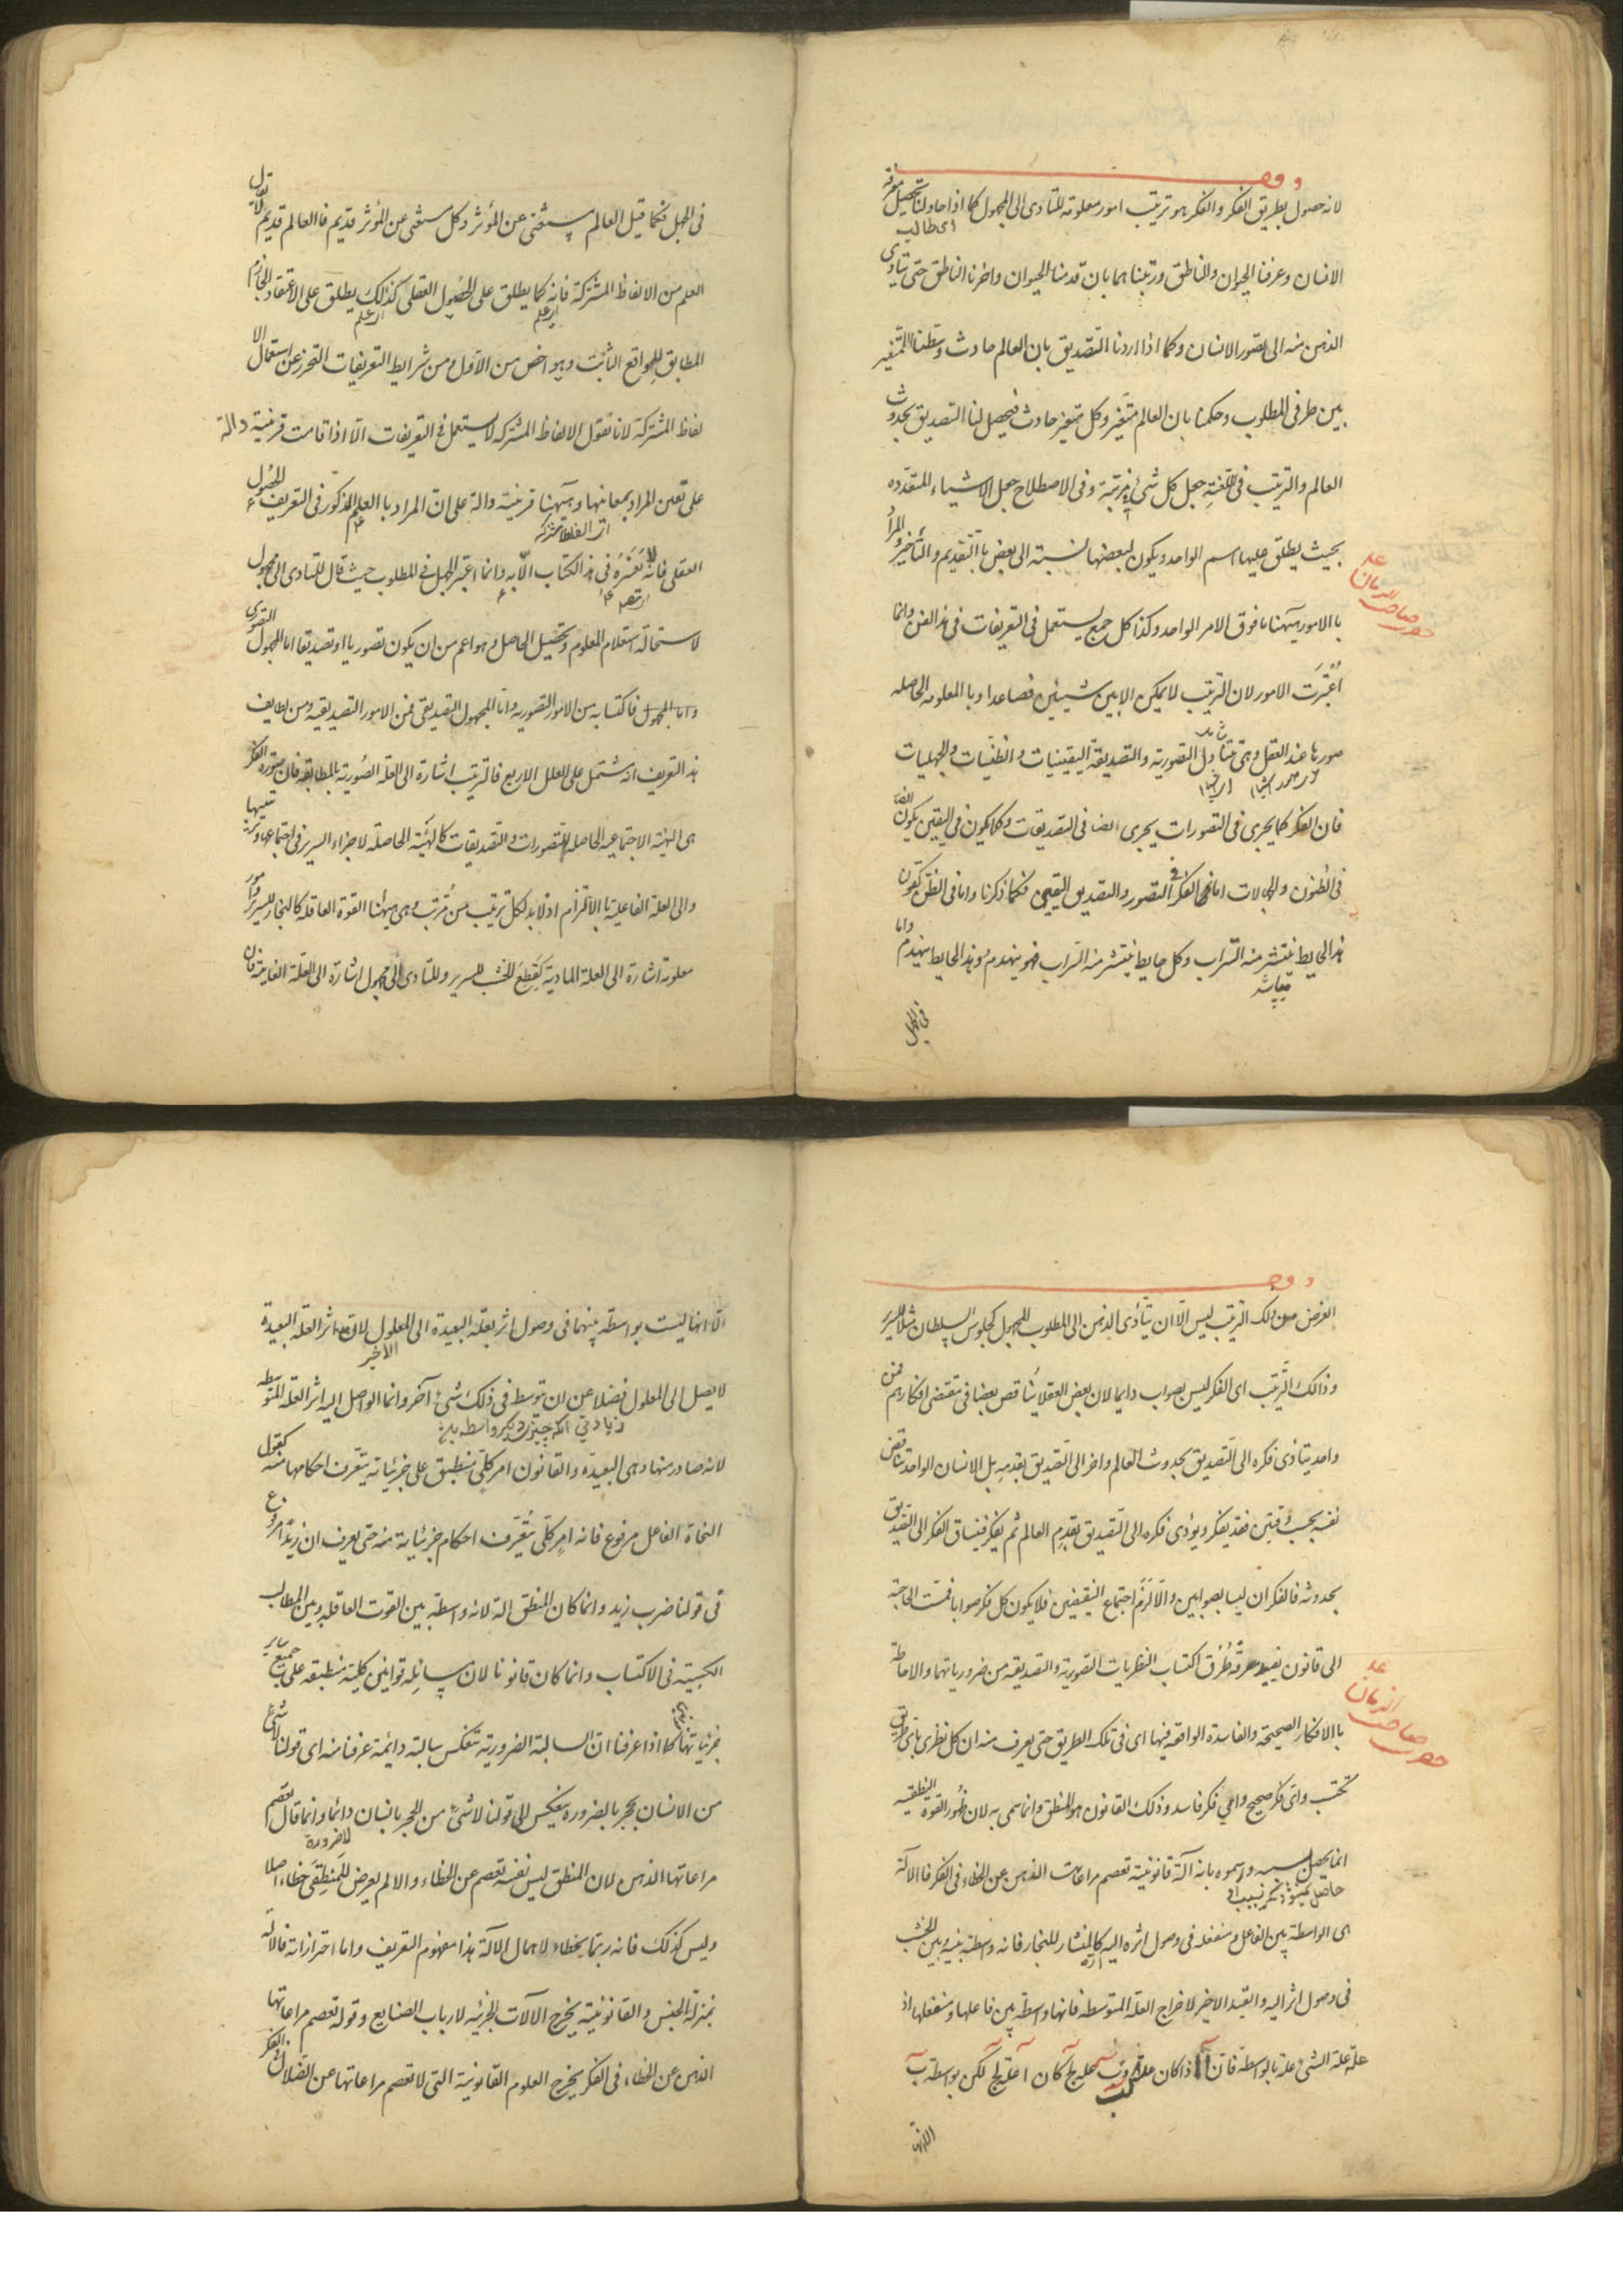 وقف
لانه حصول بطريق الفكر والفكر هو ترتيب امور معلومة للتادى الى المجهول كما اذا حاولنا تحصيل معرفة
اى طالب
الانسان وعرفنا الحيوان والناطق ورتبنا هما بان قدمنا الحيوان واخرنا الناطق حتى يتادى
الذهن منه الى تصور الانسان وكما اذا اردنا التصديق بان العالم حادث وسطنا المتغير
بين طرفى المطلوب وحكمنا بان العالم متغير وكل متغير حادث فيحصل لنا التصديق بحدوث
العالم والترتيب فى اللغة جعل كل شئ فى مرتبة وفى الاصطلاح جعل الاشياء المتعدده
بحيث يطلق عليها اسم الواحد ويكون لبعضها نسبة الى بعض باالتقديم والتأخير والمراد
باالامور ههنا ما فوق الامر الواحد وكذا كل جمع يستعمل فى التعريفات فى هذا الفن وانما
اعتبرت الامور لان الترتيب لا يمكن الا بين شيئين فصاعدا وبا المعلومه الحاصله
صورها عند العقل وهى تتناول التصورية والتصديقة اليقينيات والظنيات والجهليات
فان الفكر كما يجرى فى التصورات يجرى ايضا فى التصديقات وكما يكون فى اليقين يكون ايضا
فى الظنون والجهالات اما الفكر فى التصور والتصديق اليقينى فكما ذكرنا واما فى الظن كقولنا
هذا الحايط ينتشر منه التراب وكل حايط ينتشر منه التراب فهو ينهدم فهذا الحايط ينهدم واما
ميپاشد
فى الجهل
عد
صاحب الزمان
حضرت
فى الجهل فكما قيل العالم مستغنى عن المؤثر وكل مستغنى عن المؤثر قديم فاالعالم قديم لا يقال
العلم من الالفاظ المشتركة فانه كما يطلق على الحصول العقلى كذلك يطلق على الاعتقاد الجازم
اى علم
اى علم
المطابق للواقع الثابت وهو اخص من الاول ومن شرايط التعريفات التحرز عن استعمال الا
لفاظ المشتركة لانا نقول الالفاظ المشتركه لا يستعمل فى التعريفات الا اذا قامت قرينة دالة
على تعين المراد بمعانيها وههنا قرينة دالة على ان المراد باالعلم المذكور فى التعريف الحصول
العقلى فانه لا يفسره فى هذا الكتاب الا به وانما اعتبر الجهل فى المطلوب حيث قال للتادى الى مجهول
لاستحالة استعلام المعلوم وتحصيل الحاصل وهو اعم من ان يكون تصوريا او تصديقا اما المجهول التصورى
واما المجهول فاكتسابه من الامور التصوريه واما المجهول التصديقى فمن الامور التصديقية ومن لطايف
هذا التعريف انه مشتمل على العلل الاربع فالترتيب اشارة الى العلة الصورية بالمطابقه فان صورة الفكر
هى الهيئة الاجتماعيه الحاصلة للتصورات والتصديقات كالهيئة الحاصله لاجزاء السرير فى اجتماعها وترتيبها
والى العلة الفاعلية باالالتزام اذ لا بد لكل ترتيب من مرتب وهى ههنا القوة العاقله كالنجار للسرير وامور
معلومة اشارة الى العلة المادية كقطع الخشب للسرير وللتادى الى مجهول اشارة الى العلة الغاية فان
وقف
الغرض من ذلك الترتيب ليس الا ان يتأدى الذهن الى المطلوب المجهول كجلوس السلطان مثلا للسرير
وذالك الترتيب اى الفكر ليس بصواب دايما لان بعض العقلا يناقص بعضا فى مقتضى افكارهم فمن
واحد يتادى فكره الى التصديق بحدوث العالم واخر الى التصديق بقدمه بل الانسان الواحد يناقض
نفسه بحسب وقتين فقد يفكر ويؤدى فكره الى التصديق بقدم العالم ثم يفكر فينساق الفكر الى التصديق
بحدوثه فالفكران ليسا بصوابين والا لزم اجتماع النقيضين فلا يكون كل فكر صوابا فمست الحاجة
الى قانون يفيد معرفة طرق اكتساب النظريات التصورية والتصديقة من ضرورياتهما والاحاطة
باالافكار الصحيحة والفاسدة الواقعه فيها اى فى تلك الطريق حتى يعرف منه ان كل نظرى باى طريق
تكتسب واى فكر صحيح واى فكر فاسد وذلك القانون هو المنطق وانما سمى به لان ظهور القوه النطقيه
انما يحصل بسببه ورسموه بانه آلة قانونية تعصم مراعات الذهن عن الخطاء فى الفكر فاالآلة
حاصل نميشود مگر بسبب او
هى الواسطة بين الفاعل ومنفعله فى وصول اثره اليه كاالمنشار للنجار فانه واسطة بينه وبين الخشب
اره
فى وصول اثر اليه والقيد الاخير لاخراج العلة المتوسطه فانها واسطة بين فاعلها ومنفعلها اذ
علة علة الشئ علة بالواسطة فان آ اذا كان علة ب وب علة ج كان آ علة ج لكن بواسطة ب
الا انها
عد
صاحب الزمان
حضرت
الا انها ليست بواسطة بينهما فى وصول اثر بعلة البعيدة الى المعلول لان اثر العلة البعيدة
الاخير
لا يصل الى المعلول فضلا عن ان يتوسط فى ذلك شئ آخر وانما الواصل اليه اثر العلة المتوسطه
زيادتى آنكه چيزى ديگر واسطه
لانه صادر منها وهى البعيدة والقانون امر كلى منطبق على جزئياته يتعرف احكامها منه كقول
النحاة الفاعل مرفوع فانه امر كلى يتعرف احكام جزئياته منه حتى يعرف ان زيدا مرفوع
فى قولنا ضرب زيد وانما كان المنطق الة لانه واسطة بين القوت العاقله وبين المطالب
الكسبية فى الاكتساب وانما كان قانونا لان مسائله قوانين كلية منطبقه على جميع ساير
جزئياتها كما اذا عرفنا ان السالبة الضرورية تنعكس سالبة دائمة عرفنا منه اى قولنا لا شئ
من الانسان بحجر بالضروره ينعكس الى قولنا لا شئ من الحجر بانسان دائما وانما قال تعصم
مراعاتها الذهن لان المنطق ليس نفسه تعصم عن الخطاء والا لم يعرض للمنطقى خطاء اصلا
وليس كذلك فانه ربما يخطاء لاهمال الآلة هذا مفهوم التعريف واما احترازاته فالآلة
بمنزلة الجنس والقانونية يخرج الآلات الجزئيه لارباب الصنايع وقوله تعصم مراعاتها
الذهن عن الخطاء فى الفكر يخرج العلوم القانونية التى لا تعصم مراعاتها عن الضلال فى الفكر